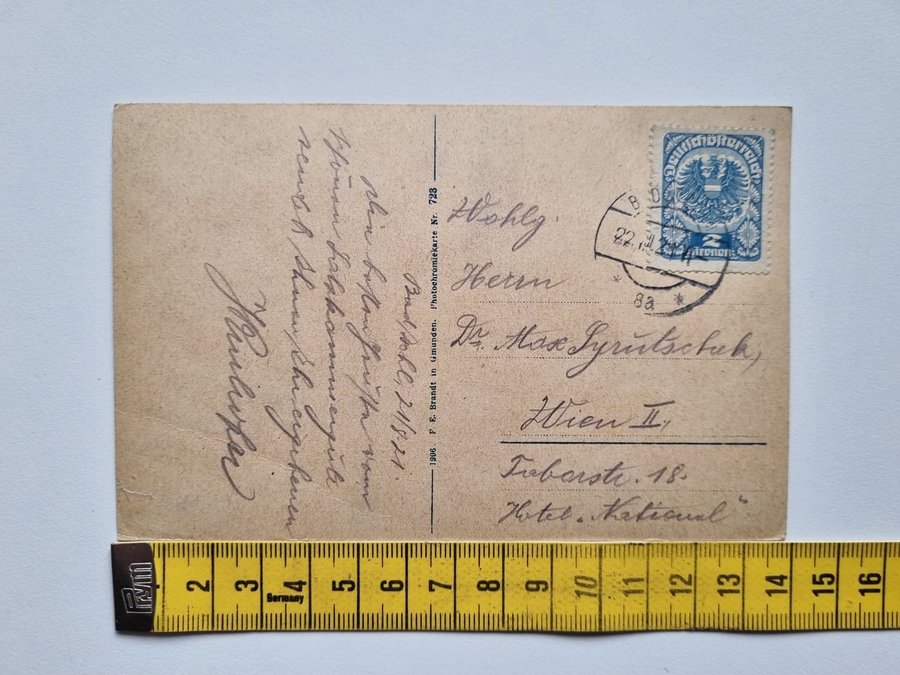 Bad Ischl, 21/7.21.
Die besten Grüße vom
schönen Salzkammergute
sendet Ihnen, Ihr ergebener
1906 F. E. Brandt in Gmunden. Photochromiekarte Nr. 723
Deutschösterreich
2
Kronen
22.
8a
Wohlg.
Herrn
Dr. Max Syrutschek,
Wien II,
Taborstr. 18.
Hotel „National"
2 3 4 5 6 7 8 9 10 11 12 13 14 15 16
Germany